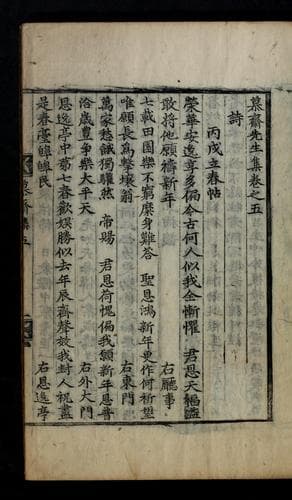 慕齋先生集卷之五
詩
丙戌立春帖
榮華安逸享多偏今古何人似我全慚懼 君恩天幅盜
敢將他願禱新年 右廳事
七載田園樂不窮糜身難答 聖恩鴻新年更作何祈望
唯願長為擊壤翁 右東門
萬家愁餓獨驩然 帝賜 君恩荷愧偏我願新年恩普
洽歲豊爭樂太平天 右外大門
恩逸亭中菊七春歡娛勝似去年辰齋聲放我封人祝盡
是春臺皥皥民 右恩逸亭